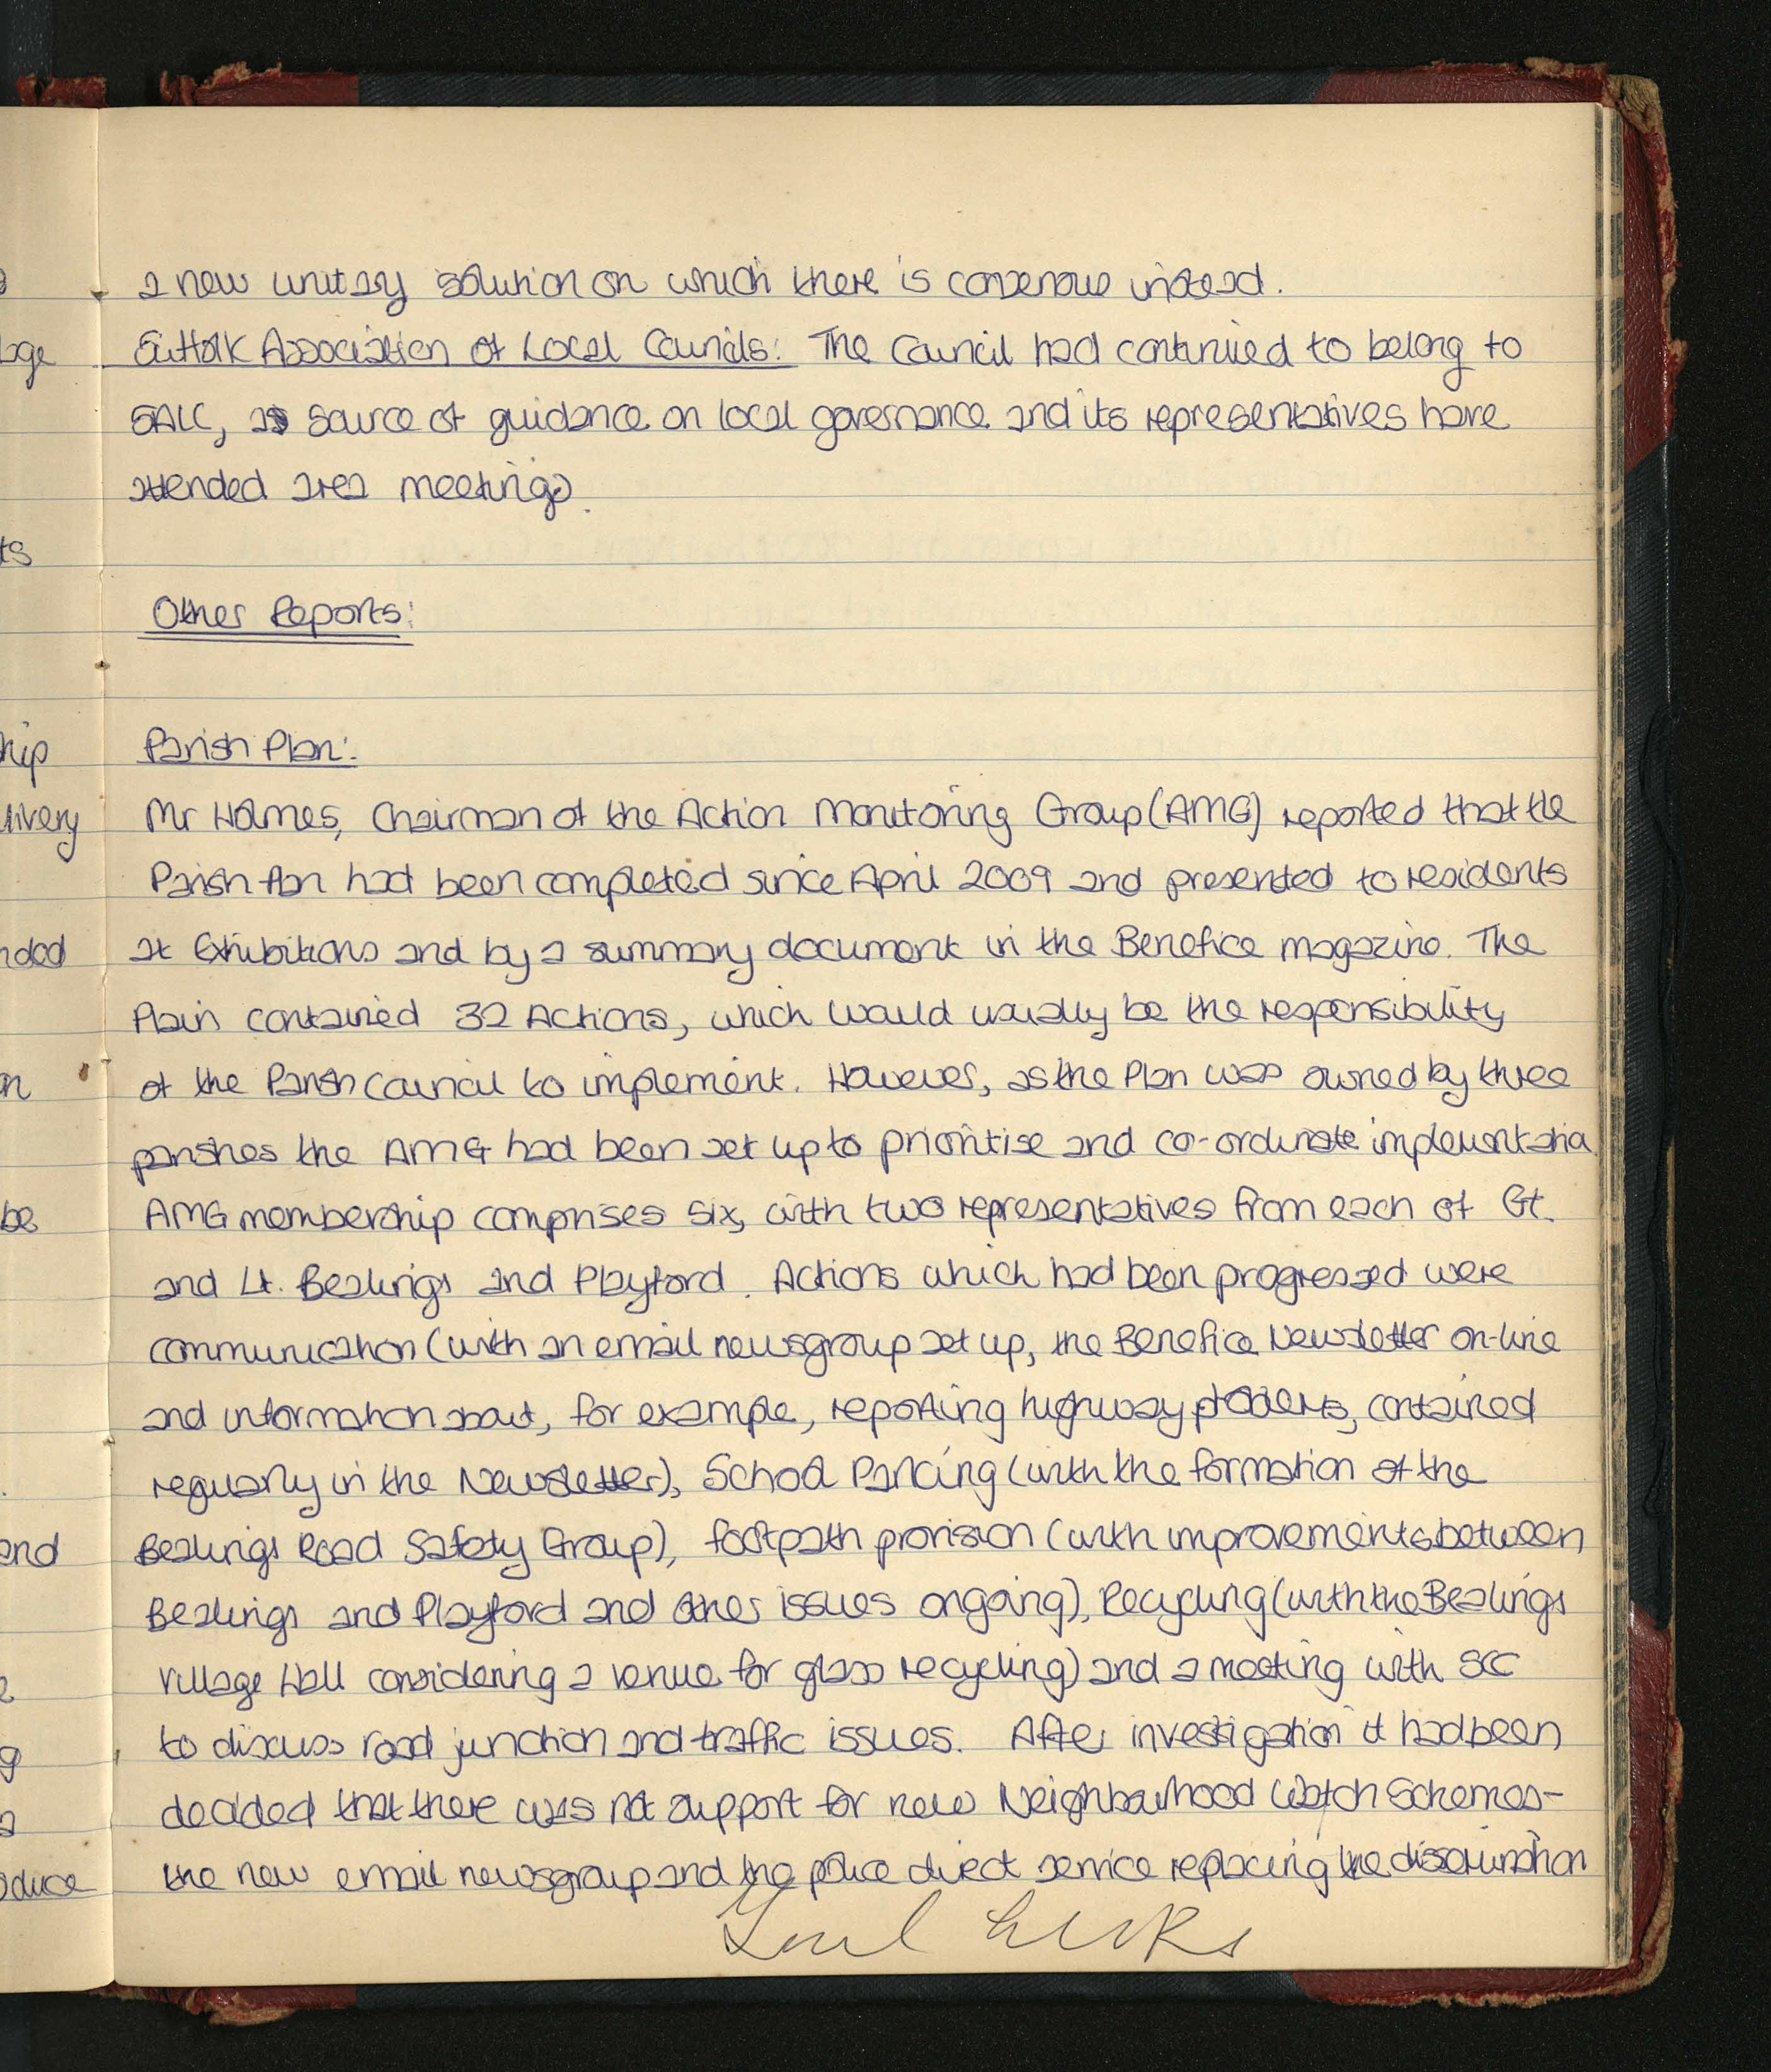 a new unitary solution on which there is consensus instead.
Suffolk Association of Local Councils: The Council had continued to belong to
SALC, as source of guidance on local governance and its representatives have
attended area meetings.
Other Reports:
Parish Plan:
Mr Holmes, Chairman of the Action Monitoring Group (AMG) reported that the
Parish Plan had been completed since April 2009 and presented to residents
at Exhibitions and by a summary document in the Benefice magazine. The
Plain contained 32 Actions, which would usually be the responsibility
of the Parish Council to implement. However, as the Plan was owned by three
parishes the AMG had been set up to prioritise and co-ordinate
AMG membership comprises six, with two representatives from each of Gt.
and Lt. Bealings and Playford. Actions which had been progressed were
communication (with an email newsgroup set up, the Benefice Newsletter on-line
and information about, for example, reporting highway problems, contained
regularly in the Newsletter), School Parking (with the formation of the
Bealings Road Safety Group), footpath provision (with improvements between
Bealings and Playford and other issues ongoing), Recycling (with the Bealings
Village Hall considering a venue for glass recycling) and a meeting with SCC
to discuss road junction and traffic issues. After investigation it had been
decided that there was not support for new Neighbourhood Watch Schemes-
the new email newsgroup and the police direct service replacing the
age
ts
hip
livery
nded
on
be
end
e
g
a
oduce